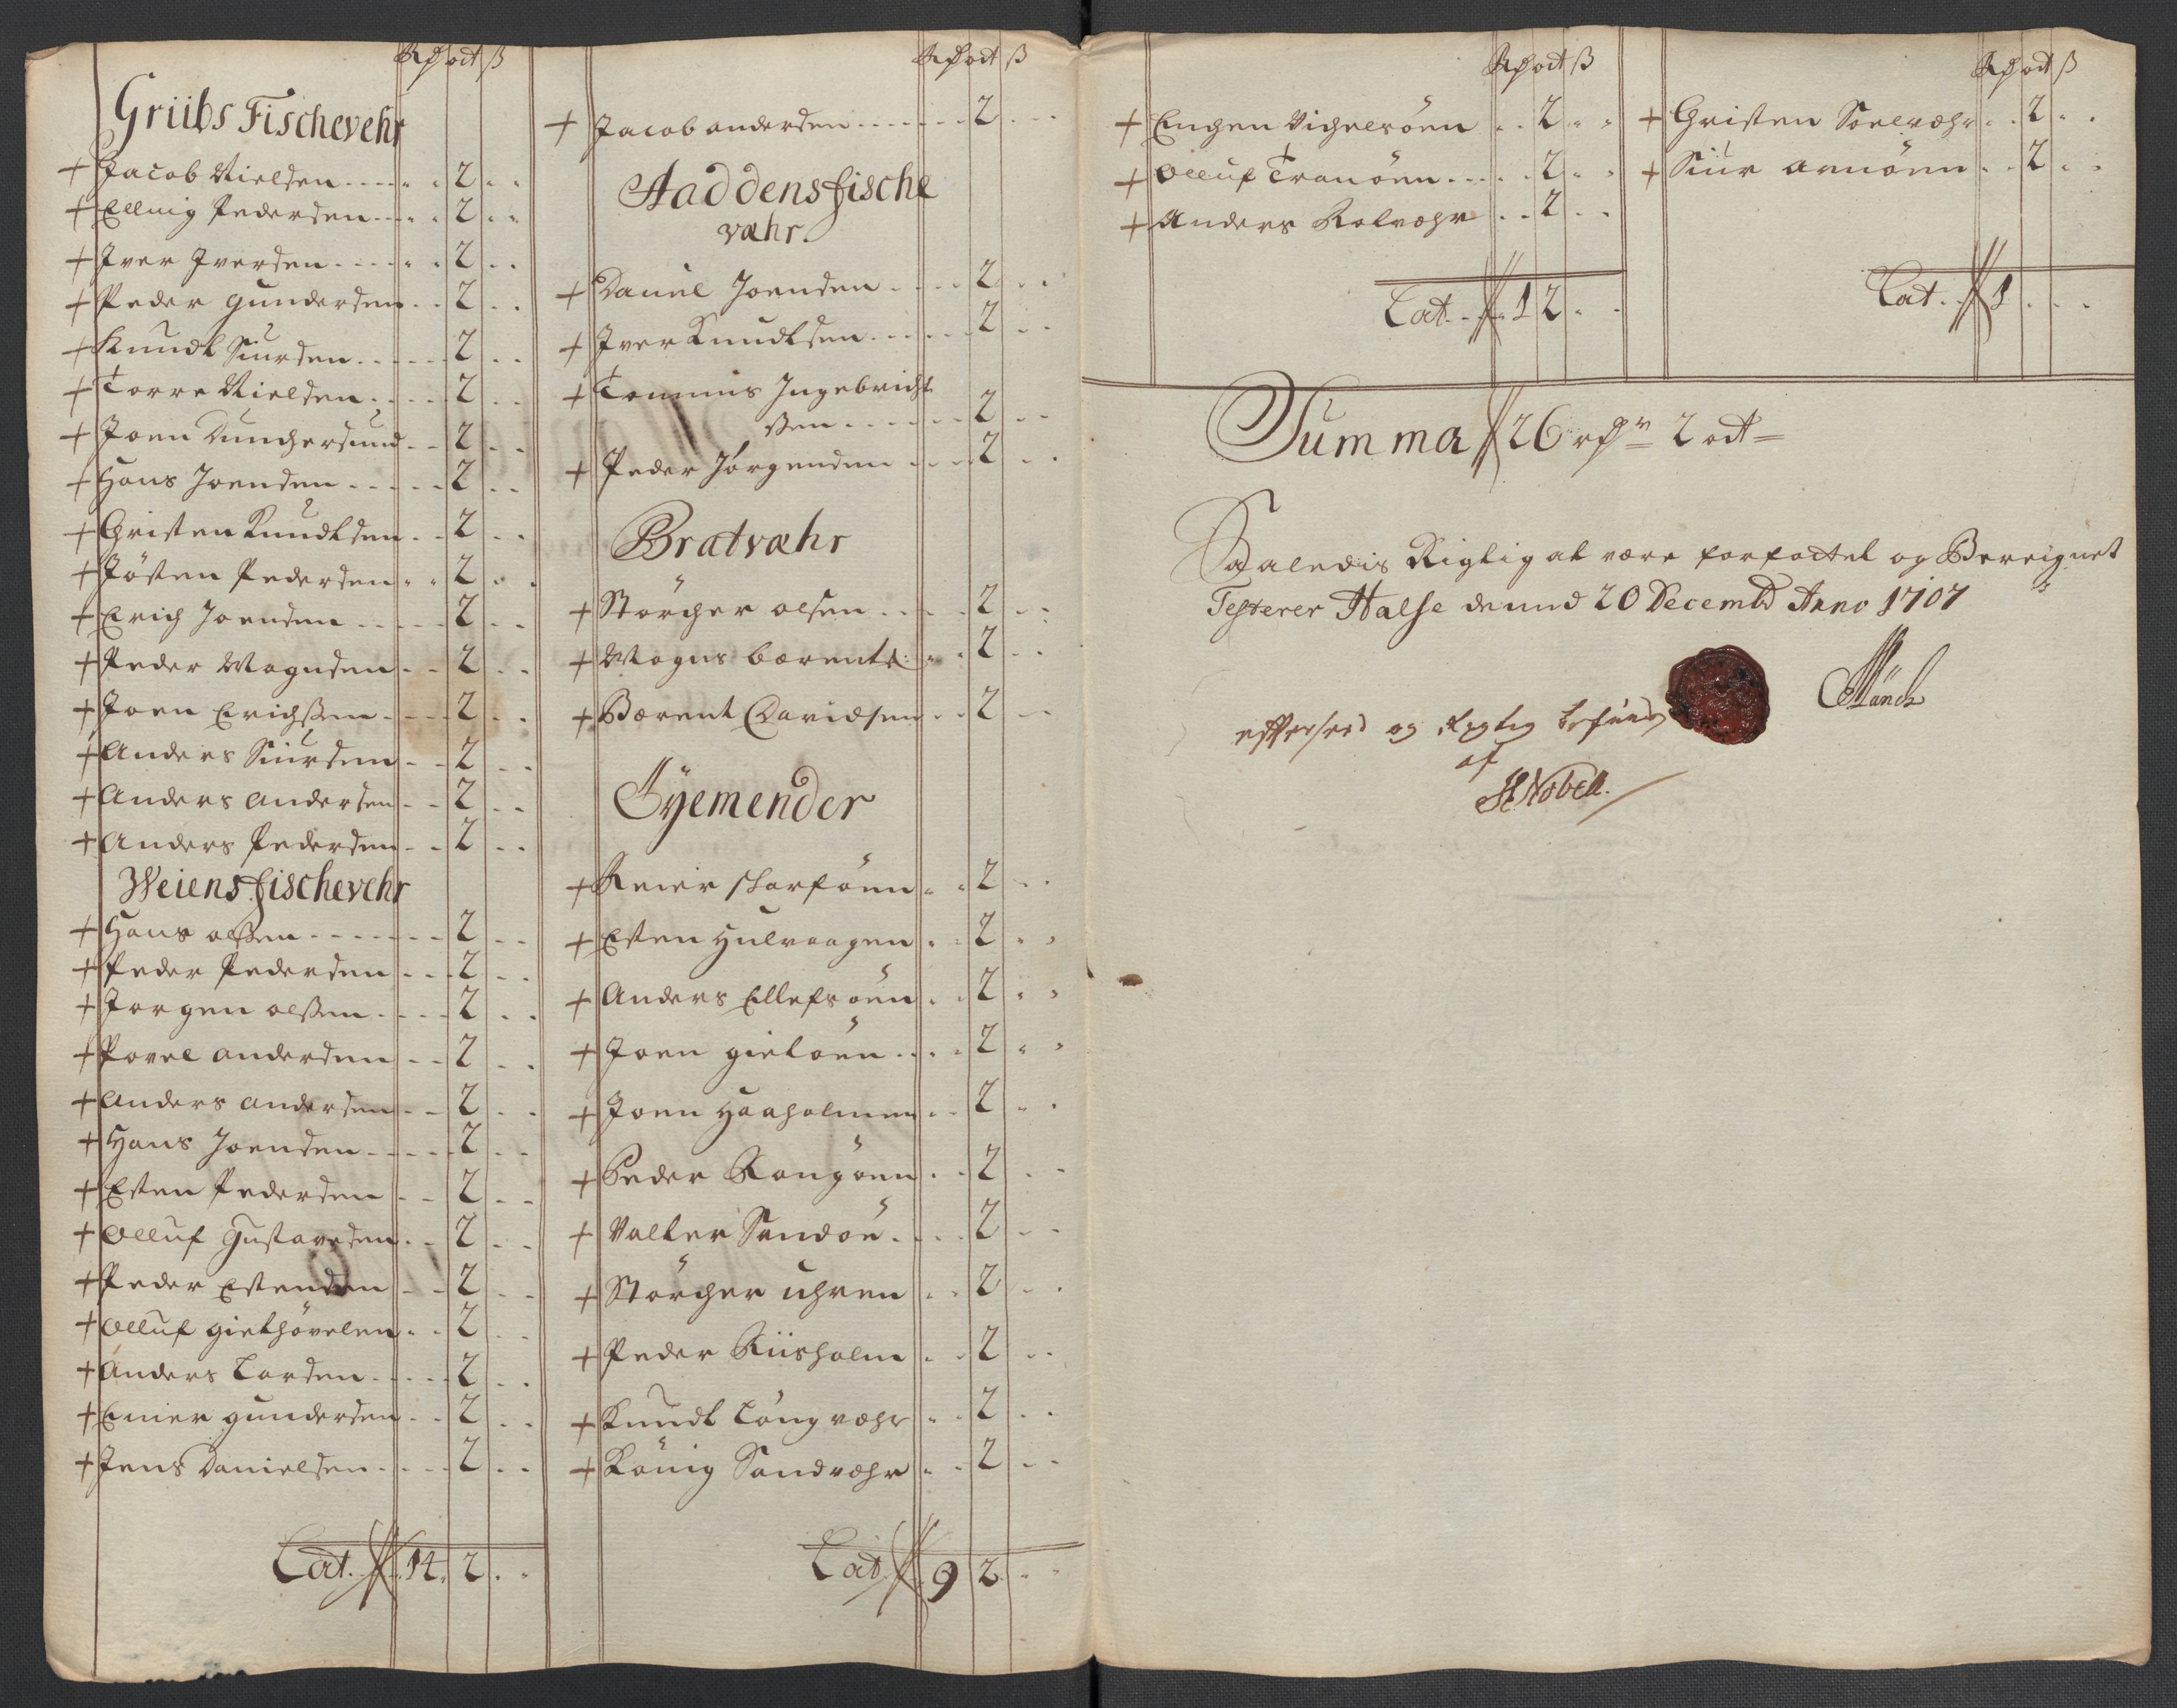 Rdr ort ß
Griibs Fischevehr
+ Jacob Nielsen . . . . 2 . .
+ Elling Pedersen . . . 2 . .
+ Iver Iversen . . . . 2 . .
+ Peder gundersen . . 2 . .
+ Knudt Siursen . . . . 2 . .
+ Torre Nielsen . . . . 2 . .
+ Joen Dunchersund . . 2 . .
+ Hans Joensen . . . . 2 . .
+ Christen Knudtsen . . 2 . .
+ Jösten Pedersen . . 2 . .
+ Erich Joensen . . . . 2 . .
+ Peder Mognsen . . 2 . .
+ Joen Erichssen . . . 2 . .
+ Anders Siursen . . 2 . .
+ Anders Andersen . . 2 . .
+ Anders Pedersen . . 2 . .
Weiens fischevehr
+ Hans olssen . . . . . 2 . .
+ Peder Pedersen . . . 2 . .
+ Jorgen olssen . . . . 2 . .
+ Povel Andersen . . 2 . .
+ Anders Andersen . . 2 . .
+ Hans Joensen . . . . 2 . .
+ Esten Pedersen . . 2 . .
+ Olluf Gustavsen . . 2 . .
+ Peder Estensen . . 2 . .
+ Olluf giethövelen . . 2 . .
+ Anders Larsen . . . . 2 . .
+ Einer gundersen . . 2 . .
+ Jens Danielsen . . . . 2 . .
Lat. 14. 2 . .
Rdr ort ß
+ Jacob andersen . . . . . . 2 . . .
Haddens fische
væhr.
+ Daniel Joensen . . . . 2 . .
+ Iver Knudtsen . . . . . 2 . .
+ Tommis Ingebricht
ssen . . . . . . 2 . .
+ Peder Jörgensen . . . . 2 . .
Bratvæhr
+ Störcher olsen . . . . 2 . .
+ Mogns bærents: . . 2 . .
+ Bærent Davidsen . . 2 . .
Öyemender
+ Reier skorföen . . 2 . .
+ Esten Hulvaagen . . 2 . .
+ Anders Ellefsöen . . 2 . .
+ Joen gietöen . . . . 2 . .
+ Joen Haaholmen . . 2 . .
+ Peder Rangöen . . 2 . .
+ Valter Sandöe . . . . 2 . .
+ Störcher uhren . . 2 . .
+ Peder Riisholm . . 2 . .
+ Knudt Lóngvæhr . . 2 . .
+ König Sandvæhr . . 2 . .
Lat 9 2 . .
Rdr ort ß
+ Engen Vignelsöen . . 2 . .
+ Olluf Tranöen . . . . 2 . .
+ Anders Rolvæhr . . 2 . .
Lat. . . 1 2 . .
Rdr ort ß
+ Christen Soelvæhr . . 2 . .
+ Siur Arnöen . . 2 . .
Lat. . 1 . . .
Summa 26 rdr 2 ort
Saaledis Rigtig at være forfattet og Bereignet
Testerer Halse dennd 20 Decembr Anno 1707
Münch
efterseet og Rigtig befunden
af
H. Nobell.